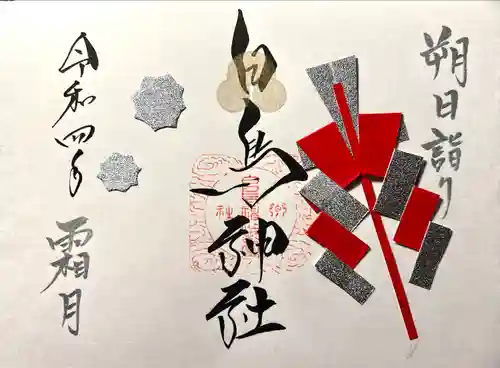 朔日詣り
白鳥神社
令和四年
霜月